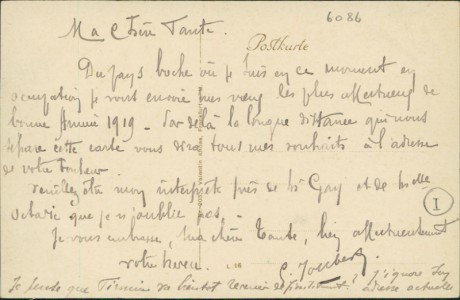 6086
Ma Chère Tante.
Postkarte
Du pays boche où je suis en ce moment en
occupation je vous envoie mes vœux les plus affectueux de
bonne Année 1919 - Par delà la longue distance qui nous
sépare cette carte vous dira tous mes souhaits à l'adresse
de votre bonheur.
Veuillez être mon interprète près de Mr Gay et de Melle
Octavie que je n'oublie pas -
I
Je vous embrasse, ma chère Tante, bien affectueusement
votre neveu. G. Joubert
Je pense que Firmin va bientôt revenir définitivement! J'ignore son
adresse actuelle